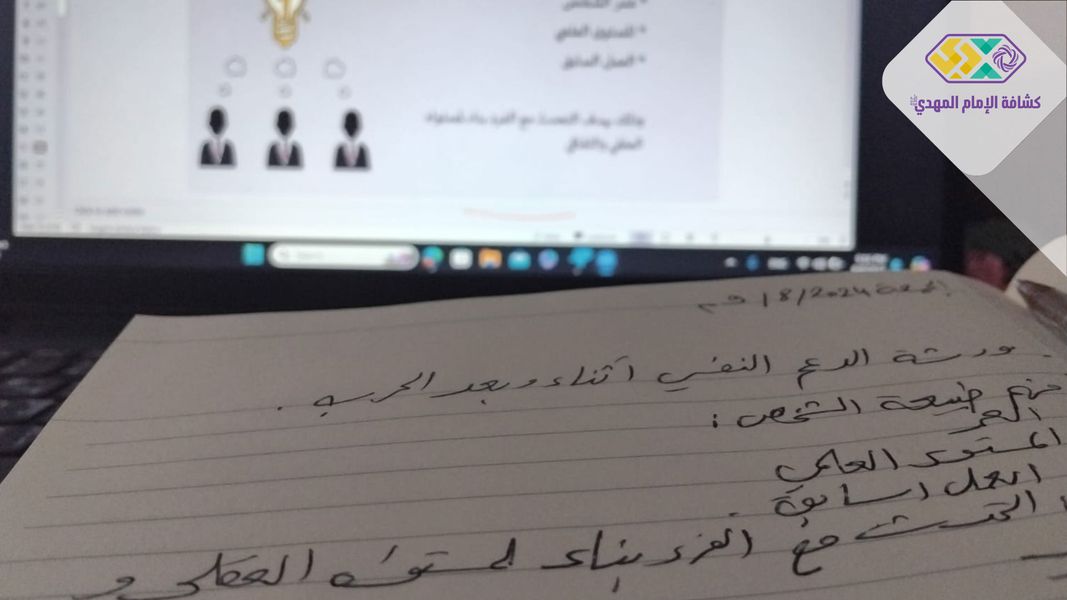 كشافة الإمام المهدي
عمر الشخص
المستوى العلمي
العمل السابق
وذلك بهدف التحدث مع الفرد بناء لمستواه
العقلي والثقافي
Search
الجمعة 2024/8/
ورشة الدعم النفسي أثناء وبعد الحرب .
فهم طبيعة الشخص :
العمر
المستوى العلمي
العمل السابق
التحدث مع الفرد بناء لمستواه العقلي و